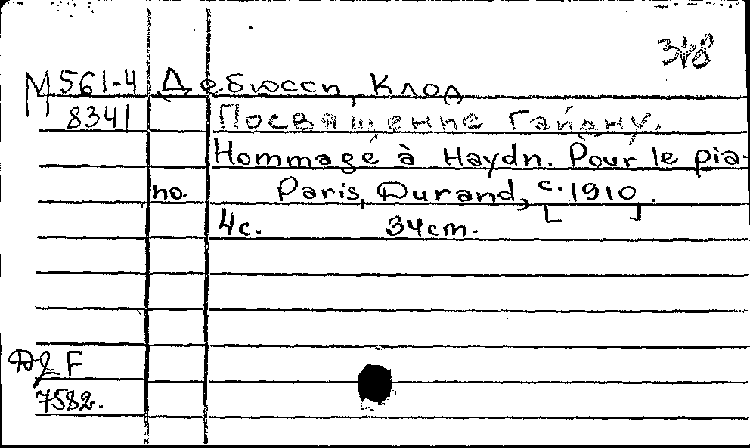 М 561-4 Дебюсси, Клод
8341 Посвящение Гайдну.
Hommage à Haydn. Pour le pia-
no. Paris, Durand, c. 1910.
4с. 34cm.
D&F
7582.